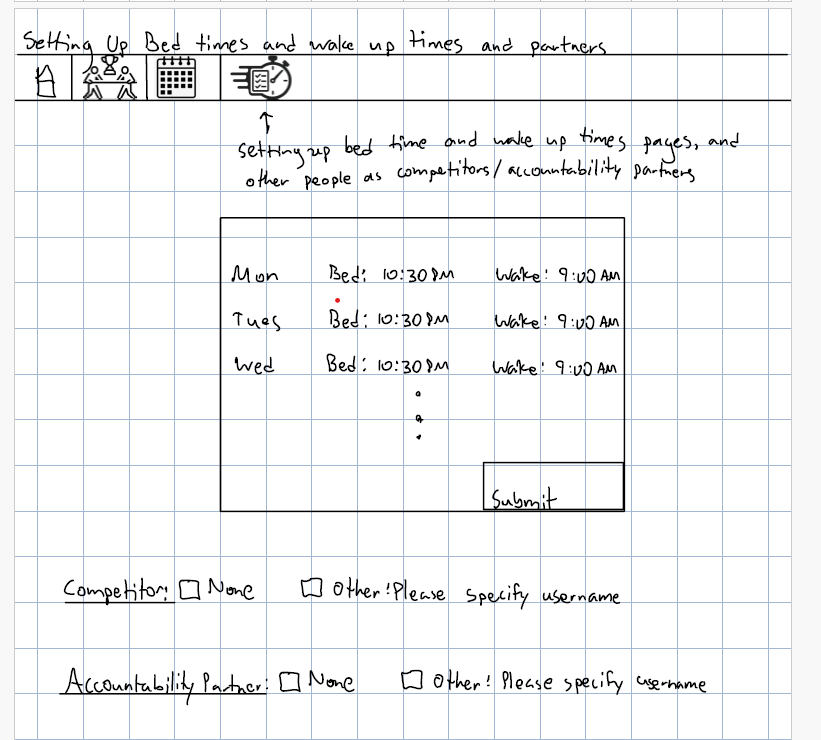 Setting Up Bed times and wake up times and partners
setting up bed time and wake up times pages, and
other people as competitors/accountability partners
Mon Bed: 10:30 PM Wake: 9:00 AM
Tues Bed: 10:30 PM Wake: 9:00 AM
Wed Bed: 10:30 PM Wake: 9:00 AM
Submit
Competitor: None Other: Please specify username
Accountability Partner: None Other: Please specify username